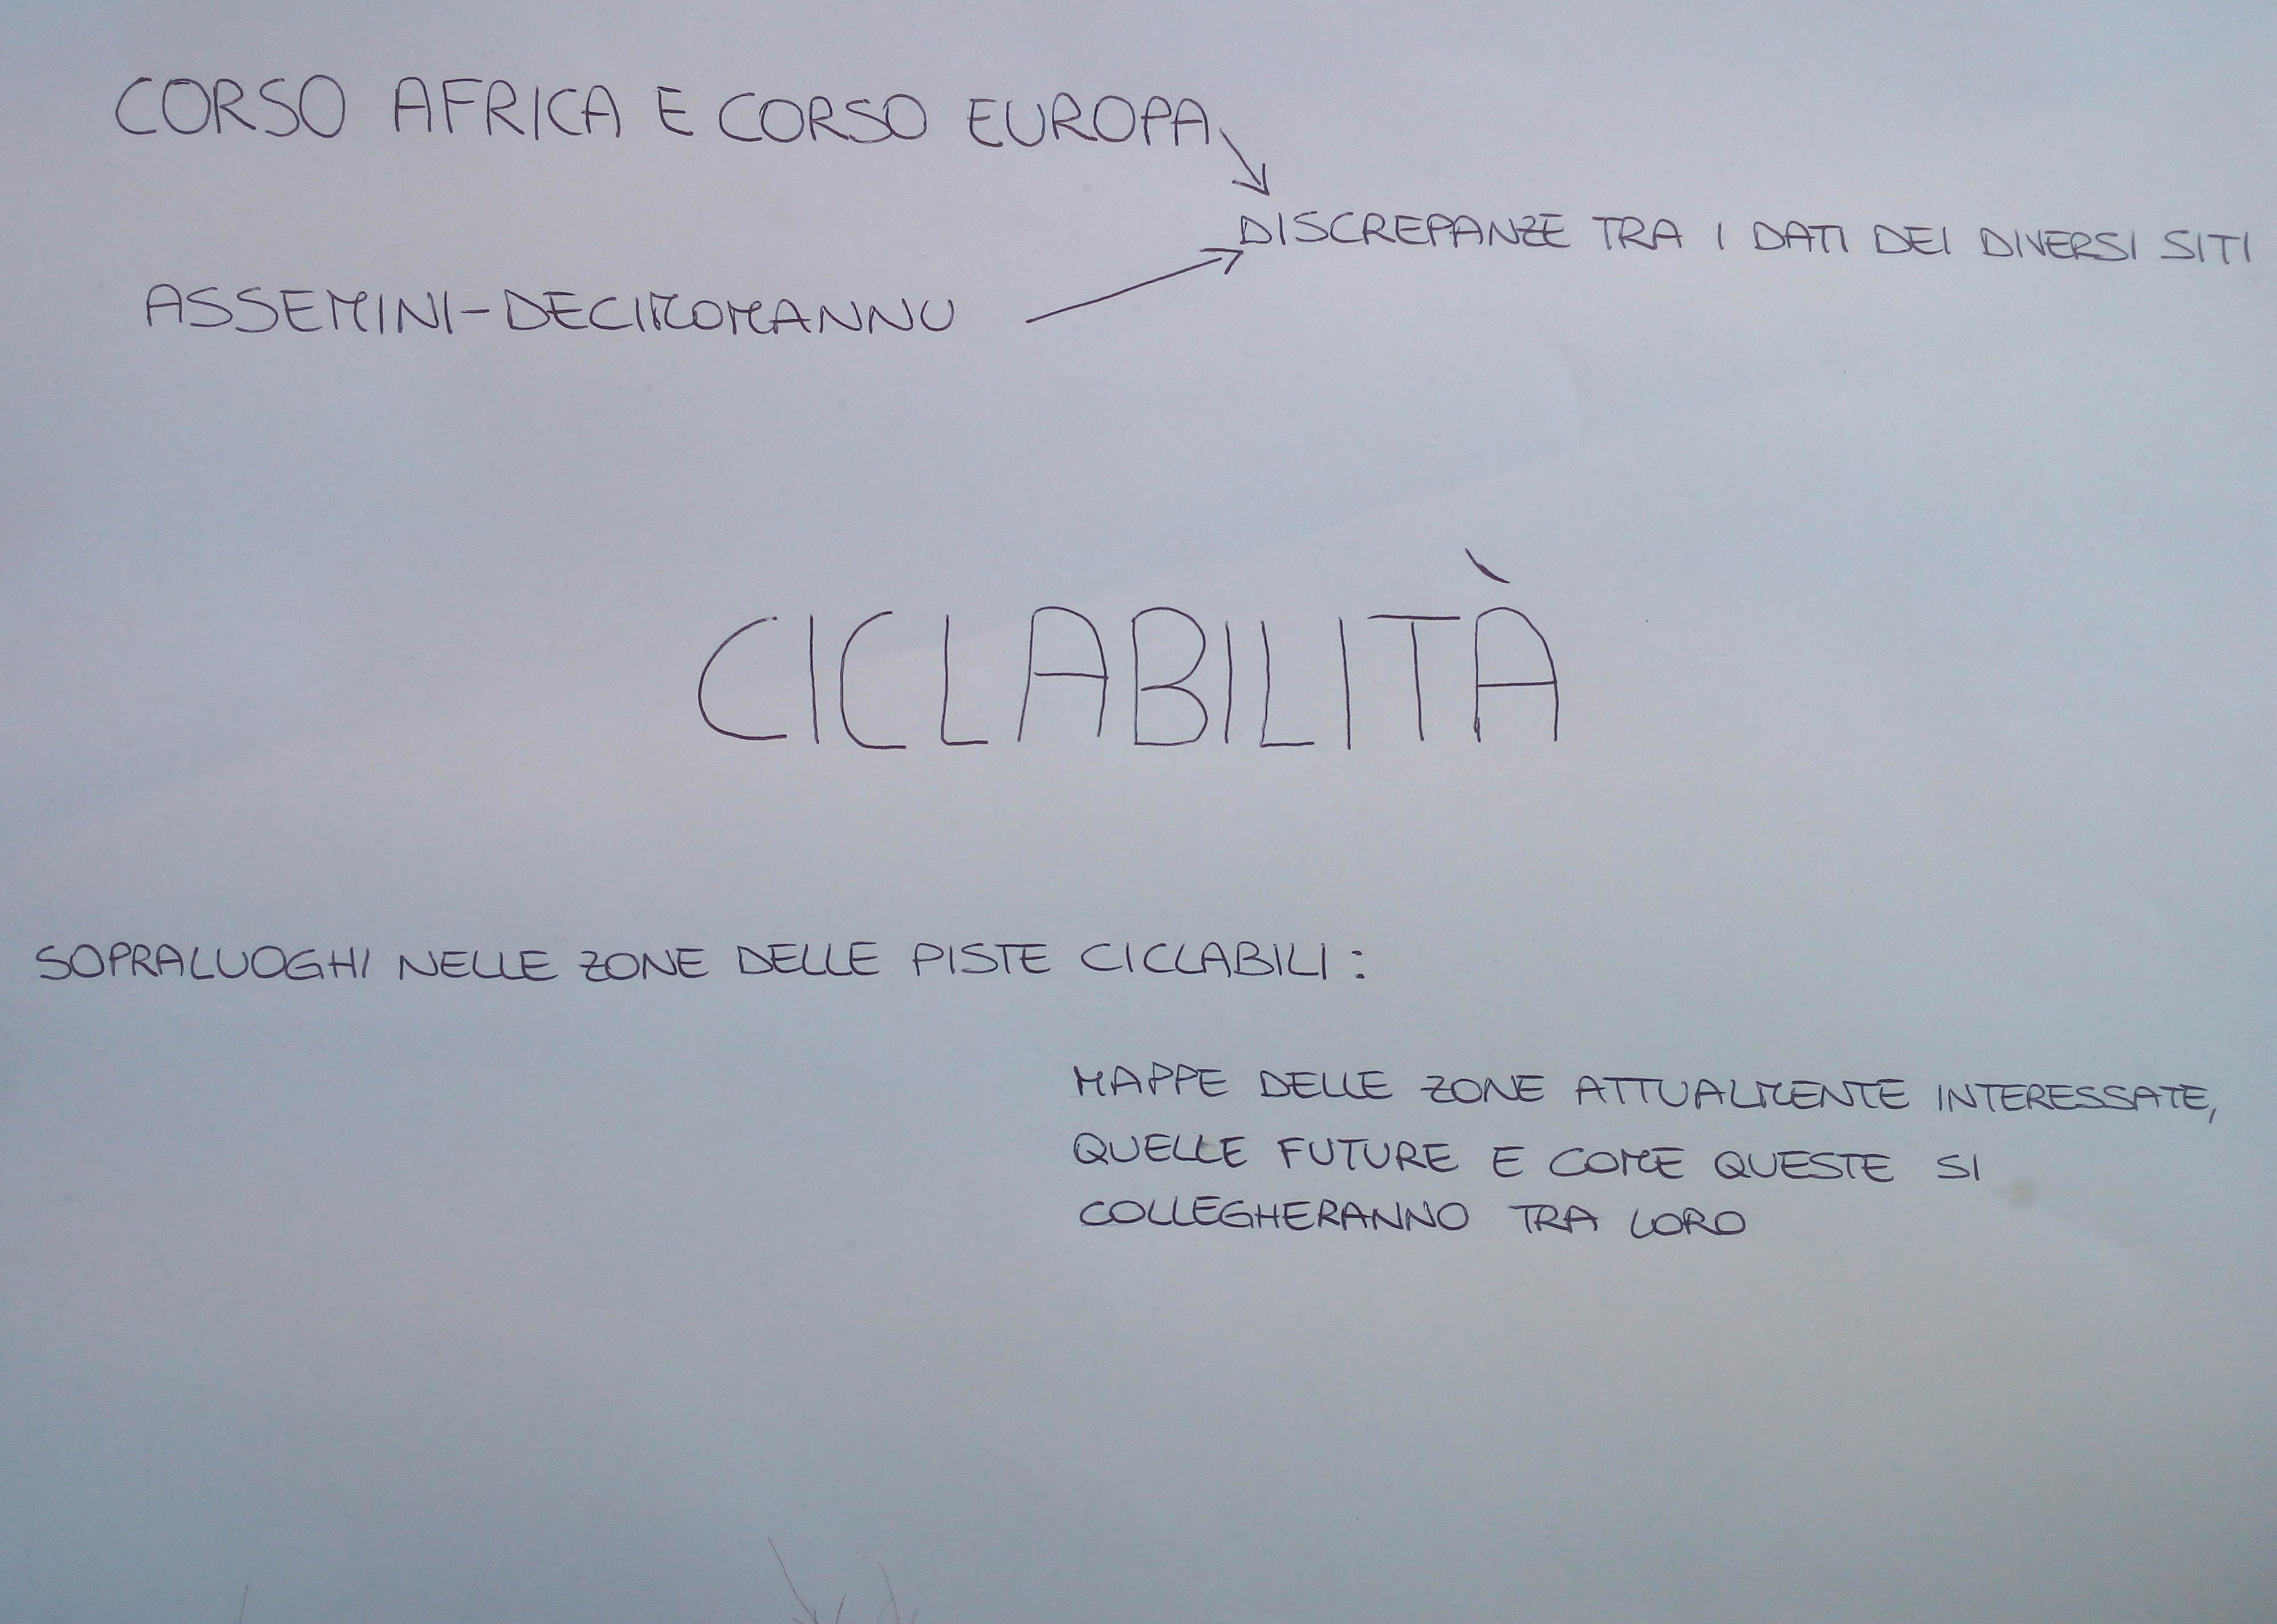 CORSO AFRICA E CORSO EUROPA
DISCREPANZE TRA I DATI DEI DIVERSI SITI
ASSEMINI-DECIMOMANNU
CICLABILITÀ
SOPRALUOGHI NELLE ZONE DELLE PISTE CICLABILI:
MAPPE DELLE ZONE ATTUALMENTE INTERESSATE,
QUELLE FUTURE E COME QUESTE SI
COLLEGHERANNO TRA LORO